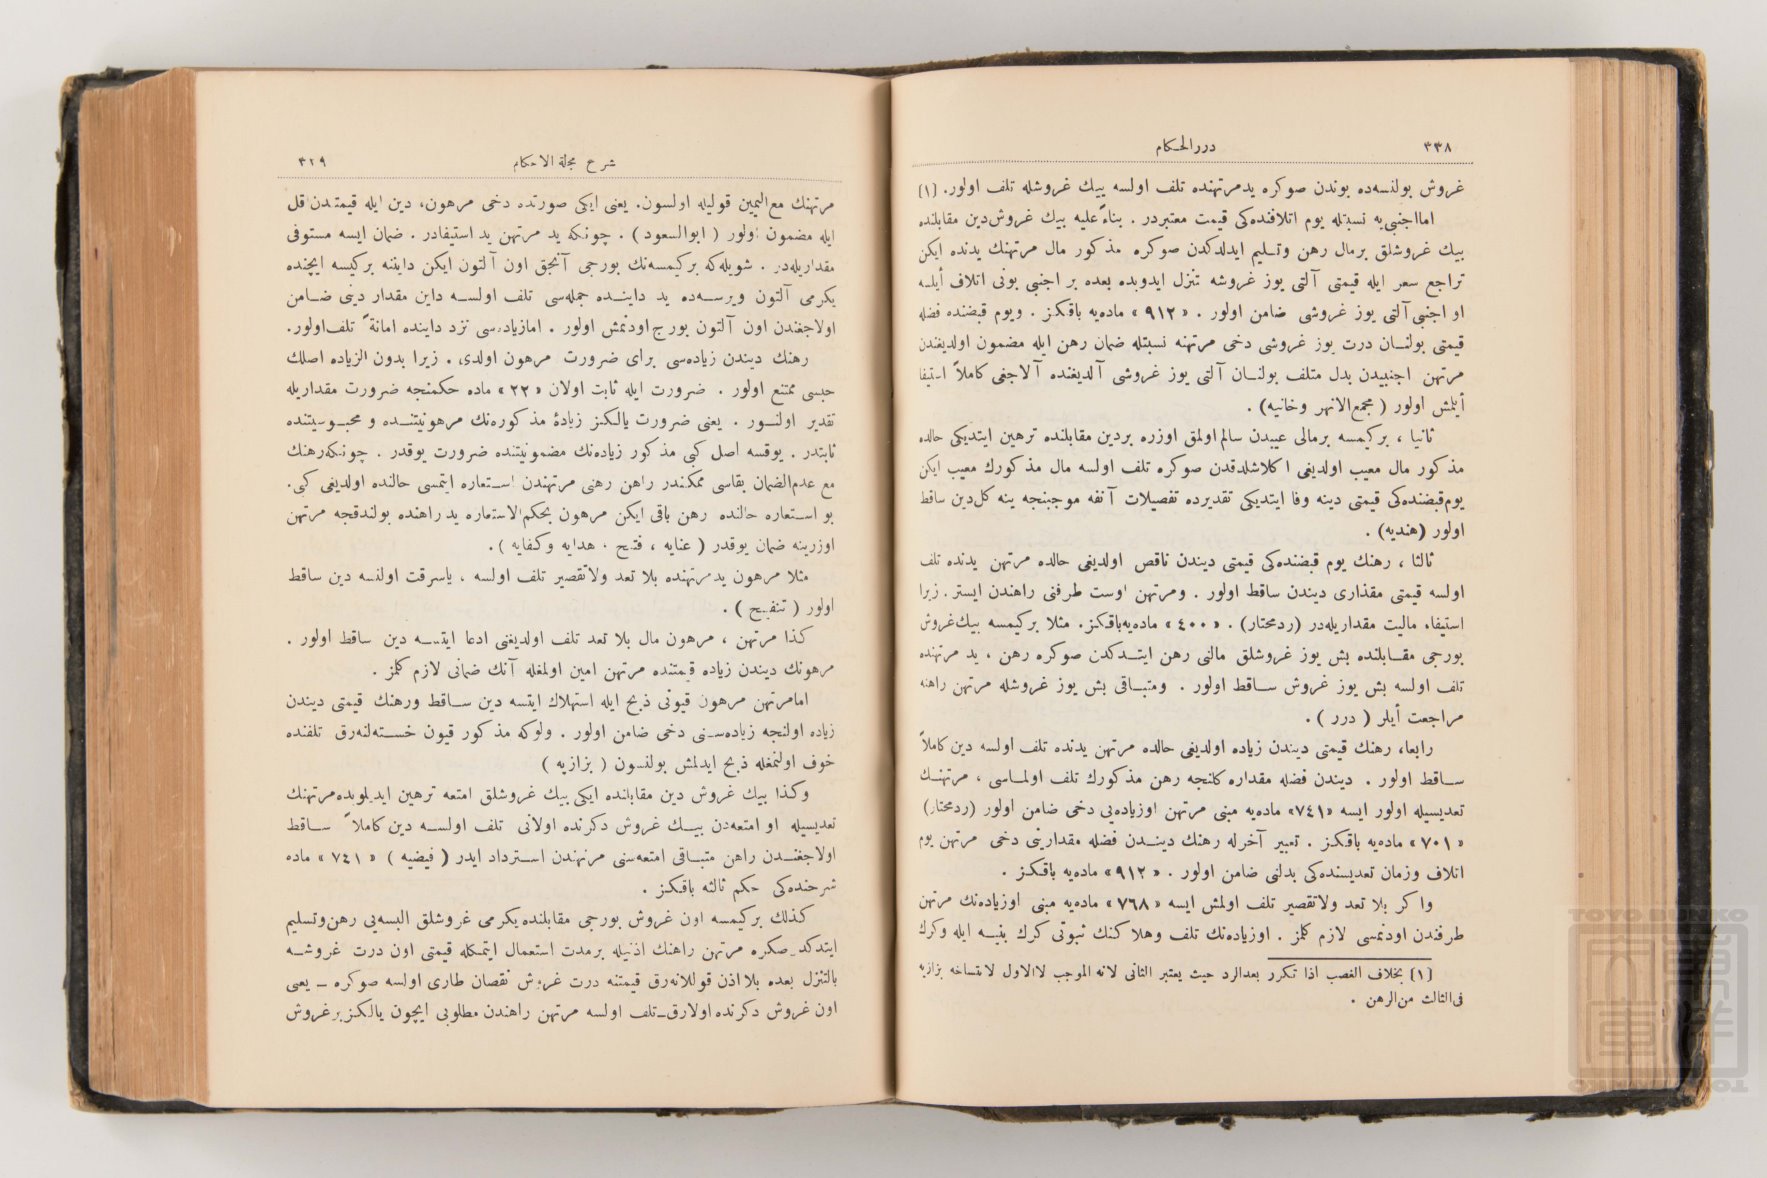 ٣٣٨
دررالحكام
غروش بولنسه‌ده بوندن صوكره يدمرتهنده تلف اولسه بيك غروشله تلف اولور. [١]
امااجنبى‌يه نسبتله يوم اتلافنده‌كى قيمت معتبردر . بناءً عليه بيك غروش‌دين مقابلنده
بيك غروشلق برمال رهن وتسليم ايدلدكدن صوكره مذكور مال مرتهنك يدنده ايكن
تراجع سعر ايله قيمتى آلتى يوز غروشه تنزل ايدوبده بعده بر اجنبى بونى اتلاف أيلسه
او اجنبى آلتى يوز غروشى ضامن اولور . «٩١٢» ماده‌يه باقكز . ويوم قبضنده فضله
قيمتى بولنان درت يوز غروشى دخى مرتهنه نسبتله ضمان رهن ايله مضمون اولديغندن
مرتهن اجنبيدن بدل متلف بولنان آلتى يوز غروشى آلديغنده آلاجغى كاملاً استيفا
أيلمش اولور ( مجمع‌الانهر وخانيه) .
ثانيا ، بركيمسه برمالى عيبدن سالم‌اولمق اوزره بردين مقابلنده ترهين ايتديكى حالده
مذكور مال معيب اولديغى اكلاشلدقدن صوكره تلف اولسه مال مذكورك معيب ايكن
يوم‌قبضنده‌كى قيمتى دينه وفا ايتديكى تقديرده تفصيلات آنفه موجبنجه ينه كل‌دين ساقط
اولور (هنديه) .
ثالثا ، رهنك يوم قبضنده‌كى قيمتى ديندن ناقص اولديغى حالده مرتهن يدنده تلف
اولسه قيمتى مقدارى ديندن ساقط اولور . ومرتهن اوست طرفنى راهندن ايستر . زيرا
استيفاء ماليت مقداريله‌در (ردمحتار) . «٤٠٠» ماده‌يه‌باقكز. مثلا بركيمسه بيك‌غروش
بورجى مقابلنده بش يوز غروشلق مالنى رهن ايتدكدن صوكره رهن ، يد مرتهنده
تلف اولسه بش يوز غروش ساقط اولور . ومتباقى بش يوز غروشله مرتهن راهنه
مراجعت أيلر ( درر ) .
رابعا، رهنك قيمتى ديندن زياده اولديغى حالده مرتهن يدنده تلف اولسه دين كاملاً
ساقط اولور . ديندن فضله مقداره كلنجه رهن مذكورك تلف اولماسى ، مرتهنك
تعديسيله اولور ايسه «٧٤١» ماده‌يه مبنى مرتهن اوزياده‌يى دخى ضامن اولور (ردمحتار)
«٧٠١» ماده‌يه باقكز . تعبير آخرله رهنك ديندن فضله مقدارينى دخى مرتهن يوم
اتلاف وزمان تعديسنده‌كى بدلنى ضامن اولور . «٩١٢» ماده‌يه باقكز .
واكر بلا تعد ولاتقصير تلف اولمش ايسه «٧٦٨» ماده‌يه مبنى اوزياده‌نك مرتهن
طرفندن اودنمسى لازم كلمز . اوزياده‌نك تلف وهلاكنك ثبوتى كرك بينه ايله وكرك
[١] بخلاف الغصب اذا تكرر بعدالرد حيث يعتبر الثانى لانه الموجب لاالاول لانتساخه بزازيه
فى‌الثالث من‌الرهن .
شرح مجلة الاحكام
٣٢٩
مرتهنك مع‌اليمين قوليله اولسون. يعنى ايكى صورتده دخى مرهون، دين ايله قيمتندن‌اقل
ايله مضمون اولور ( ابوالسعود) . چونكه يد مرتهن يد استيفادر . ضمان ايسه مستوفى
مقداريله‌در . شويله‌كه بركيمسه‌نك بورجى آنجق اون آلتون ايكن داينه بركيسه ايچنده
يكرمى آلتون ويرسه‌ده يد داينده جمله‌سى تلف اولسه داين مقدار دينى ضامن
اولاجغندن اون آلتون بورج‌اودنمش اولور . امازياده‌سى نزد داينده امانةً تلف‌اولور.
رهنك ديندن زياده‌سى براى ضرورت مرهون اولدى . زيرا بدون الزياده اصلك
حبسى ممتنع اولور . ضرورت ايله ثابت اولان «٢٢» ماده حكمنجه ضرورت مقداريله
تقدير اولنور . يعنى ضرورت يالكز زيادۀ مذكوره‌نك مرهونيتنده و محبوسيتنده
ثابتدر . يوقسه اصل كبى مذكور زياده‌نك مضمونيتنده ضرورت يوقدر . چونكه‌رهنك
مع عدم‌الضمان بقاسى ممكندر راهن رهنى مرتهندن استعاره ايتمسى حالنده اولديغى كبى.
بو استعاره حالنده رهن باقى ايكن مرهون بحكم‌الاستعاره يدراهنده بولندقجه مرتهن
اوزرينه ضمان يوقدر ( عنايه ، فتح ، هدايه وكفايه ) .
مثلا مرهون يدمرتهنده بلا تعد ولاتقصير تلف اولسه ، ياسرقت اولنسه دين ساقط
اولور ( تنقيح ) .
كذا مرتهن ، مرهون مال بلا تعد تلف اولديغنى ادعا ايتسه دين ساقط اولور .
مرهونك ديندن زياده قيمتنده مرتهن امين اولمغله آنك ضمانى لازم كلمز .
امامرتهن مرهون قيونى ذبح ايله استهلاك ايتسه دين ساقط ورهنك قيمتى ديندن
زياده اولنجه زياده‌سنى دخى ضامن اولور . ولوكه مذكور قيون خسته‌لنه‌رق تلفنده
خوف اولنمغله ذبح ايدلمش بولنسون ( بزازيه )
وكذا بيك غروش دين مقابلنده ايكى بيك غروشلق امتعه ترهين ايديلوبده‌مرتهنك
تعديسيله او امتعه‌دن بيك غروش دكرنده اولانى تلف اولسه دين كاملاً ساقط
اولاجغندن راهن متباقى امتعه‌سنى مرتهندن استرداد ايدر ( فيضيه ) «٧٤١» ماده
شرحنده‌كى حكم ثالثه باقكز .
كذلك بركيمسه اون غروش بورجى مقابلنده يكرمى غروشلق البسه‌يى رهن‌وتسليم
ايتدكدن‌صكره مرتهن راهنك اذنيله برمدت استعمال ايتمكله قيمتى اون درت غروشه
بالتنزل بعده بلااذن قوللانه‌رق قيمتنه درت غروش نقصان طارى اولسه صوكره ـ يعنى
اون غروش دكرنده اولارق‌ـ تلف اولسه مرتهن راهندن مطلوبى ايچون يالكز برغروش